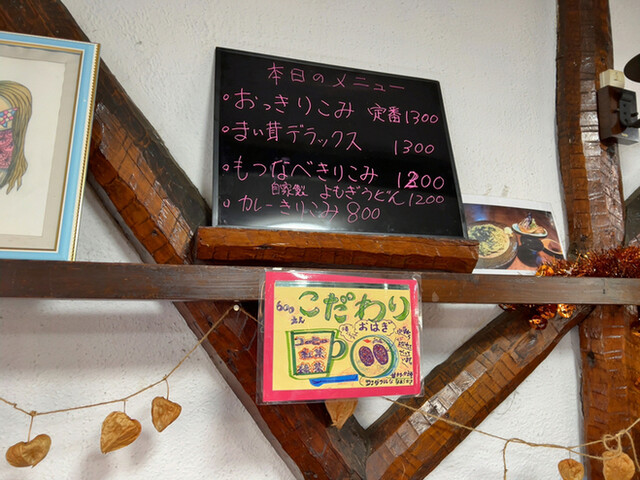 本日のメニュー
・おっきりこみ 定番1300
・まい茸デラックス 1300
・もつなべきりこみ 1200
自家製 よもぎうどん 1200
・カレーきりこみ 800
600えん
こだわり
おはぎ
コーヒー
紅茶